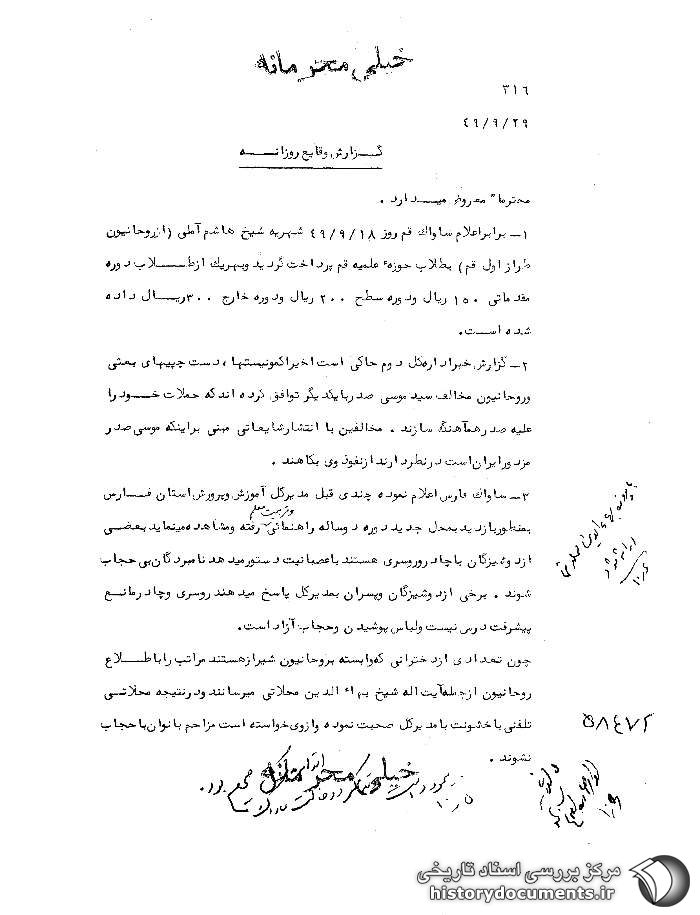 خیلی محرمانه
۳۱٦
٤۹/۹/۲۹
گزارش وقایع روزانه
محترما" معروض میدارد .
۱- برابر اعلام ساواك قم روز ٤۹/۹/۱۸ شهریه شیخ هاشم آملی (از روحانیون
طراز اول قم) بطلاب حوزه علمیه قم پرداخت گردید و بهریك از طلاب دوره
مقدماتی ۱۵۰ ریال و دوره سطح ۲۰۰ ریال و دوره خارج ۳۰۰ ریال داده
شده است.
۲- گزارش خبر اداره کل دوم حاکی است اخیرا کمونیستها ، دست چپیهای بعثی
و روحانیون مخالف سید موسی صدر با یکدیگر توافق کرده اند که حملات خود را
علیه صدر هماهنگ سازند . مخالفین با انتشار شایعاتی مبنی بر اینکه موسی صدر
مزدور ایران است در نظر دارند از نفوذ وی بکاهند .
۳- ساواك فارس اعلام نموده چندی قبل مدیرکل آموزش و پرورش استان فارس
بمنظور بازدید بمحل جدید دوره دوساله راهنمائی و تربیت معلم رفته و مشاهده مینماید بعضی
از دوشیزگان با چادر و روسری هستند با عصبانیت دستور میدهد نامبردگان بی حجاب
شوند . برخی از دوشیزگان و پسران بمدیرکل پاسخ میدهند روسری و چادر مانع
پیشرفت درس نیست و لباس پوشیدن و حجاب آزاد است.
چون تعدادی از دخترانی که وابسته بروحانیون شیراز هستند مراتب را باطلاع
روحانیون از جمله آیت اله شیخ بهاء الدین محلاتی میرسانند و در نتیجه محلاتی
تلفنی با خشونت با مدیرکل صحبت نموده و از وی خواسته است مزاحم بانوان با حجاب
نشوند .
۵۸٤۷۲
خیلی محرمانه
مرکز بررسی اسناد تاریخی
historydocuments.ir